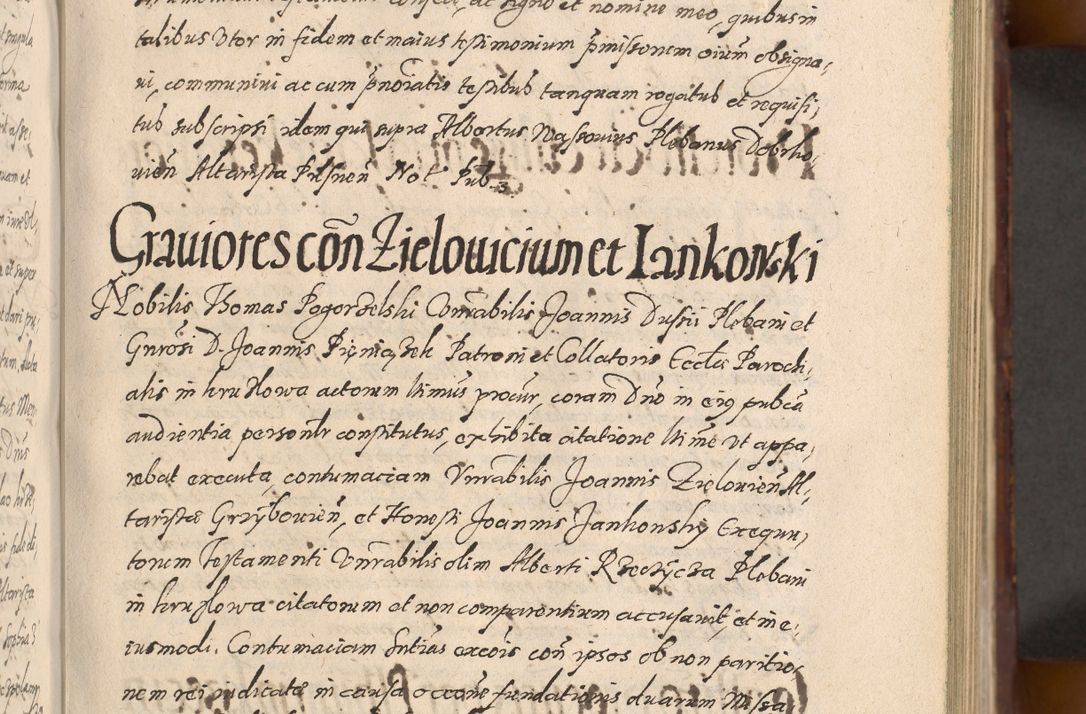 talibus Vtor in fidem et maius testimonium p̃missorum oium̃ obsigna,
ui, communiui ac cum p̃noĩatis testibus tanquam rogatus et requisi,
tus subscripsi idem qui supra Albertus Wassouius Plebanus Dobrho,
uien̄ Altarista Pilsnen̄ Not Pub
Grauiores coñ Zielouicium et Iankowski
Nobilis Thomas Pogorzelski Vnr̃abilis Joannis Dussii Plebani et
Gnrõsi D. Joannis Pięniążek Patroni et Collatoris Eccl̃æ Parochi,
alis in kruzlowa actorum ltimus procur, coram Dño in eiʒ pubca
audientia personlr constitutus, exhibita citatione ltime vt appa,
rebat executa, contumaciam Vnrãbilis Joannis Zielouien̄ Al,
taristæ Grzÿbouien̄, et Honesti Joannis Jankonsky Exequu,
torum Testamenti Vnrãbilis olim Alberti Rzeczÿcza Plebani
in kruzlowa citatorum et non comparentium accusauit, et in e,
iusmodi. Contumaciam sntias excõis coñ ipsos ob non paritio,
nem rei iudicatæ in causa occõne fundationis duarum Missa